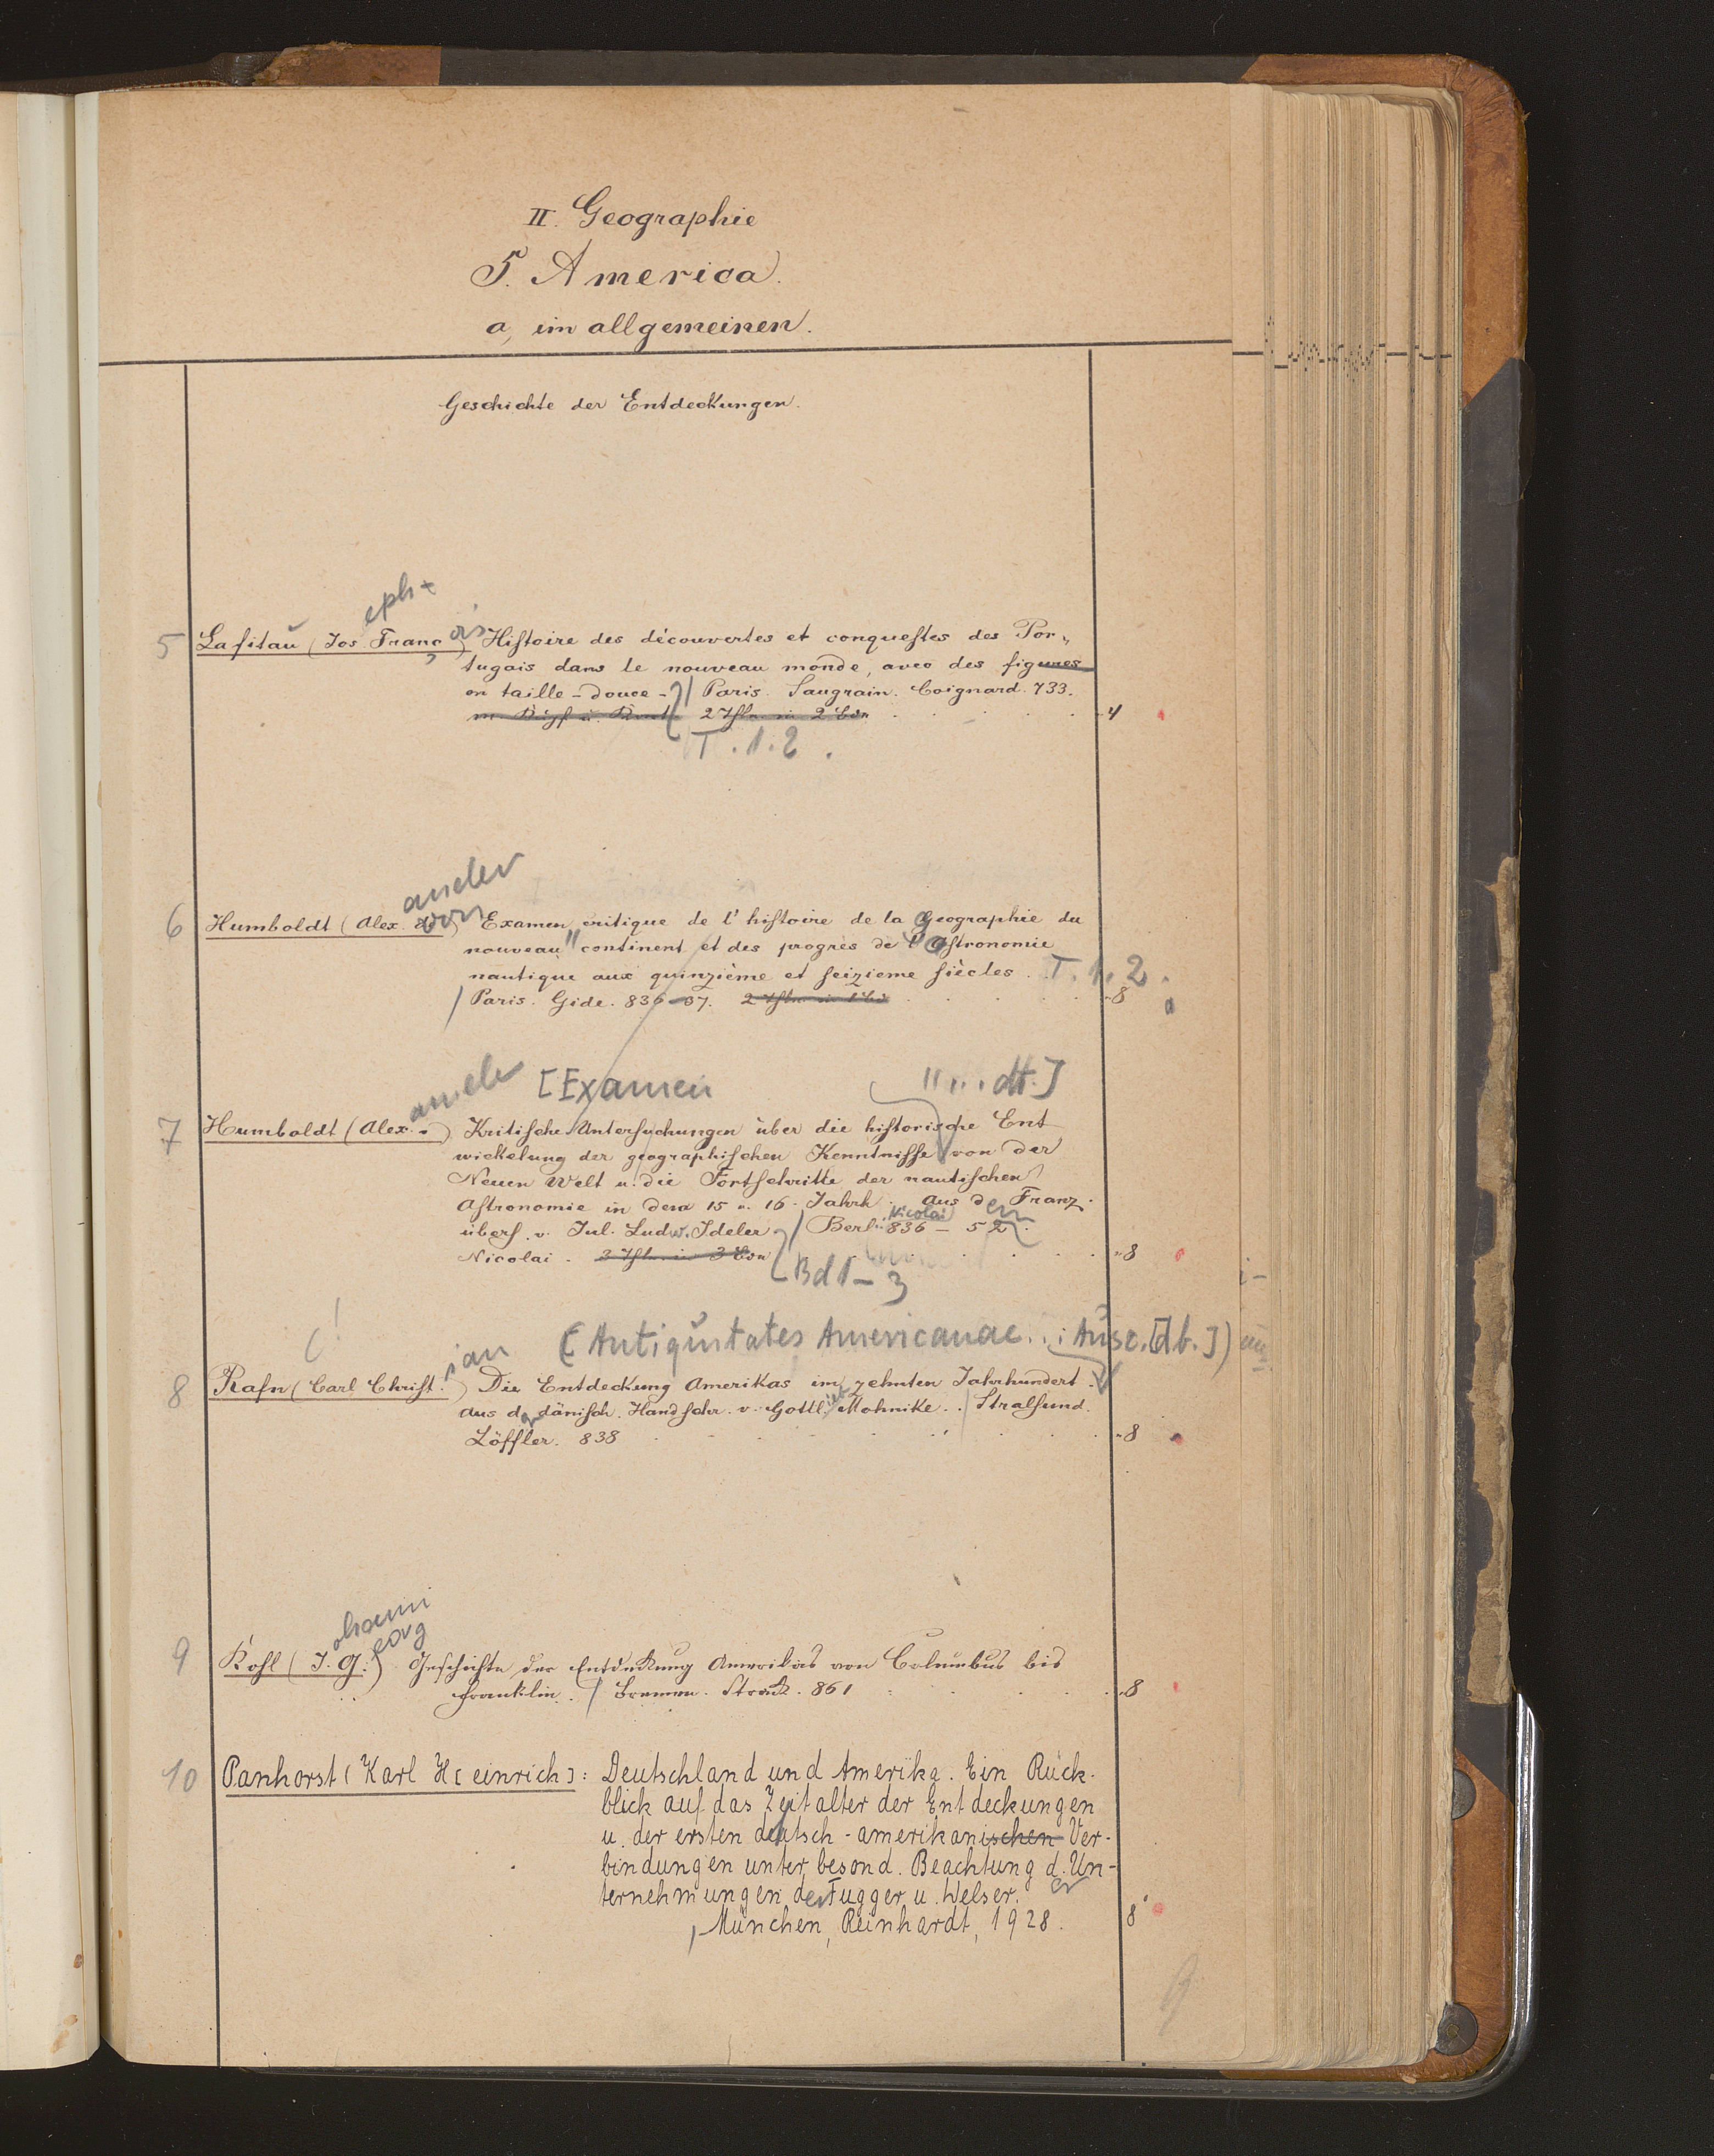 II. Geographie
5. America.
a, im allgemeinen.
Geschichte der Entdeckungen.
eph-
5 Lafitau (Jos. Franç ois) Histoire des découvertes et conquestes des Por„
tugais dans le nouveau monde, avec des figures
en taille-douce- / Paris. Saugrain. Coignard. 733.
2 Thle. in 2 Bdn . . . 4
T. 1. 2.
ander
6 Humboldt (Alex. von) Examen critique de l'histoire de la Geographie du
nouveau continent et des progres de l'Astronomie
nautique aux quinzième et seizieme siècles. T. 1. 2.
/ Paris. Gide. 836-37. 2 Thle. in 1 Bd . . . „8
ander [Examen " ... dt.]
7 Humboldt (Alex. -) Kritische Untersuchungen über die historische Ent
wickelung der geographischen Kenntnisse von der
Neuen Welt u. die Fortschritte der nautischen
Astronomie in dem 15 u. 16. Jahrh. Aus d en Franz.
übers. v. Jul. Ludw. Ideler / Berl. Nicolai 836 - 52.
Nicolai. 3 Thle. in 3 Bdn . . . „8
Bd 1-3
(!
ian (Antiquitates Americanae ... Ausz. [dt.])
8 Rafn (Carl Christ.) Die Entdeckung Amerikas im zehnten Jahrhundert.
Aus d. dänisch. Handschr. v. Gottl. Mohnike. / Stralsund.
Löffler. 838 . . . „8
ohann
eorg
9 Kohl (J. G.) Geschichte der Entdeckung Amerikas von Columbus bis
Franklin. / Bremen. Strack. 861 . . . „8
10 Panhorst (Karl H[einrich]: Deutschland und Amerika. Ein Rück-
blick auf das Zeitalter der Entdeckungen
u. der ersten deutsch-amerikanischen Ver-
bindungen unter besond. Beachtung d. Un-
ternehmungen der Fugger u. Welser.
München, Reinhardt, 1928. 8'